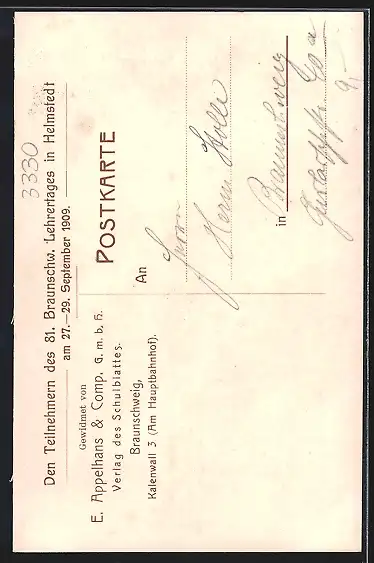 Den Teilnehmern des 81. Braunschw. Lehrertages in Helmstedt
am 27.—29. September 1909.
Gewidmet von
E. Appelhans & Comp. G. m. b. H.
Verlag des Schulblattes.
Braunschweig,
Kalenwall 3 (Am Hauptbahnhof).
3330
POSTKARTE
An
Herrn
Herm. Stolle
in Braunschweig
60 a
9,-